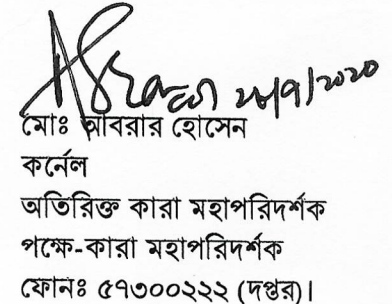 ২৮/৭/২০২০
মোঃ আবরার হোসেন
কর্নেল
অতিরিক্ত কারা মহাপরিদর্শক
পক্ষে-কারা মহাপরিদর্শক
ফোনঃ ৫৭৩০০২২২ (দপ্তর)।